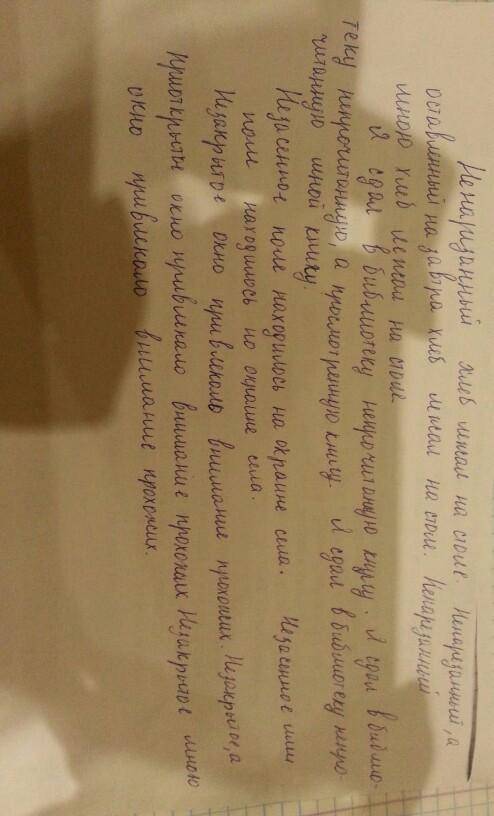 Ненарезанный хлеб лежал на столе. Ненарезанный, а
оставленный на завтра хлеб лежал на столе. Ненарезанный
мною хлеб лежал на столе
Я сдал в библиотеку непрочитанную книгу. Я сдал в библио-
теку непрочитанную, а просмотренную книгу. Я сдал в библиотеку непро-
читанную мной книгу.
Незасеенное поле находилось на окраине села. Незасеенное ими
поле находилось но окраине села.
Незакрытое окно привлекало внимание прохожих. Незакрытое, а
приоткрытое окно привлекало внимание прохожих Незакрытое мною
окно привлекало внимание прохожих.